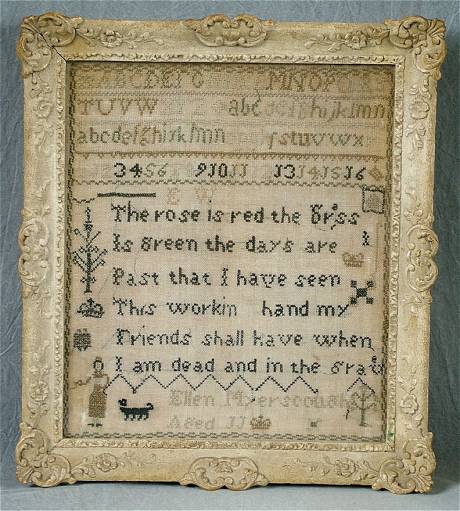 ABCDEFG MNOP
TUVW abcdefghijklmn
abcdefghijklmn rstuvwx
3456 91011 13141516
E W
The rose is red the grss
Is green the days are
Past that I have seen
This workin hand my
Friends shall have when
I am dead and in the grav
Ellen
Aged 11